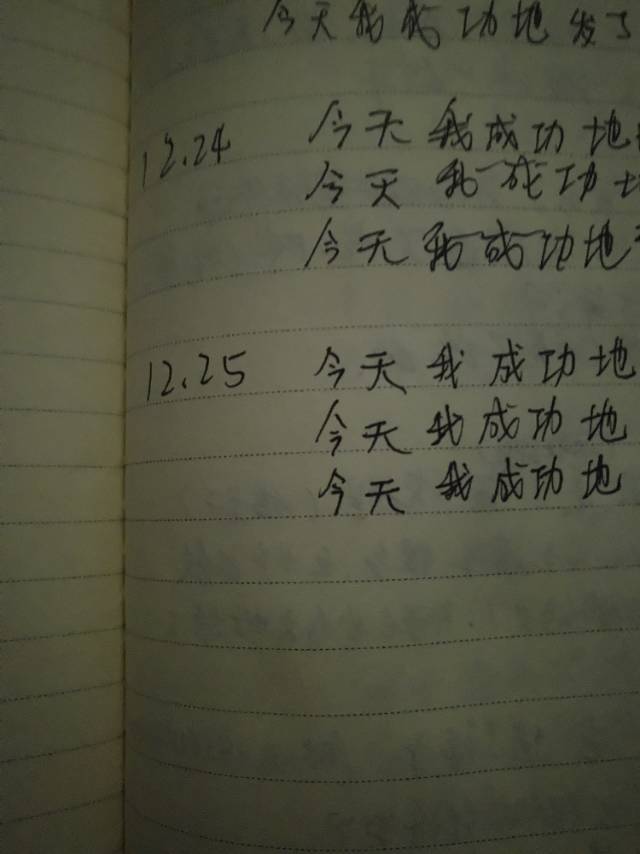 今天我成功地发了
12.24 今天我成功地
今天我成功
今天我成功地
12.25 今天我成功地
今天我成功地
今天我成功地